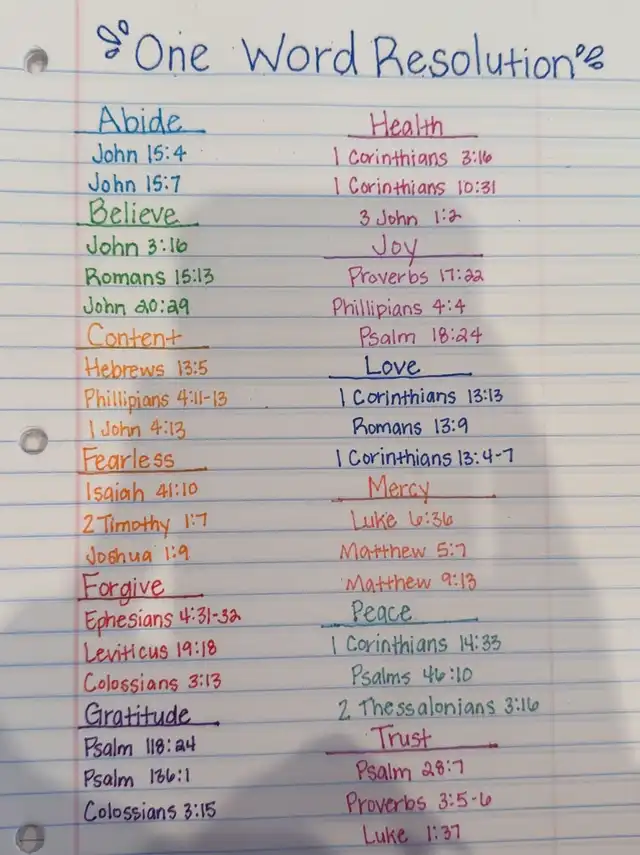 One Word Resolution
Abide
John 15:4
John 15:7
Believe
John 3:16
Romans 15:13
John 20:29
Content
Hebrews 13:5
Phillipians 4:11-13
1 John 4:13
Fearless
Isaiah 41:10
2 Timothy 1:7
Joshua 1:9
Forgive
Ephesians 4:31-32
Leviticus 19:18
Colossians 3:13
Gratitude
Psalm 118:24
Psalm 136:1
Colossians 3:15
Health
1 Corinthians 3:16
1 Corinthians 10:31
3 John 1:2
Joy
Proverbs 17:22
Phillipians 4:4
Psalm 18:24
Love
1 Corinthians 13:13
Romans 13:9
1 Corinthians 13:4-7
Mercy
Luke 6:36
Matthew 5:7
Matthew 9:13
Peace
1 Corinthians 14:33
Psalms 46:10
2 Thessalonians 3:16
Trust
Psalm 28:7
Proverbs 3:5-6
Luke 1:37